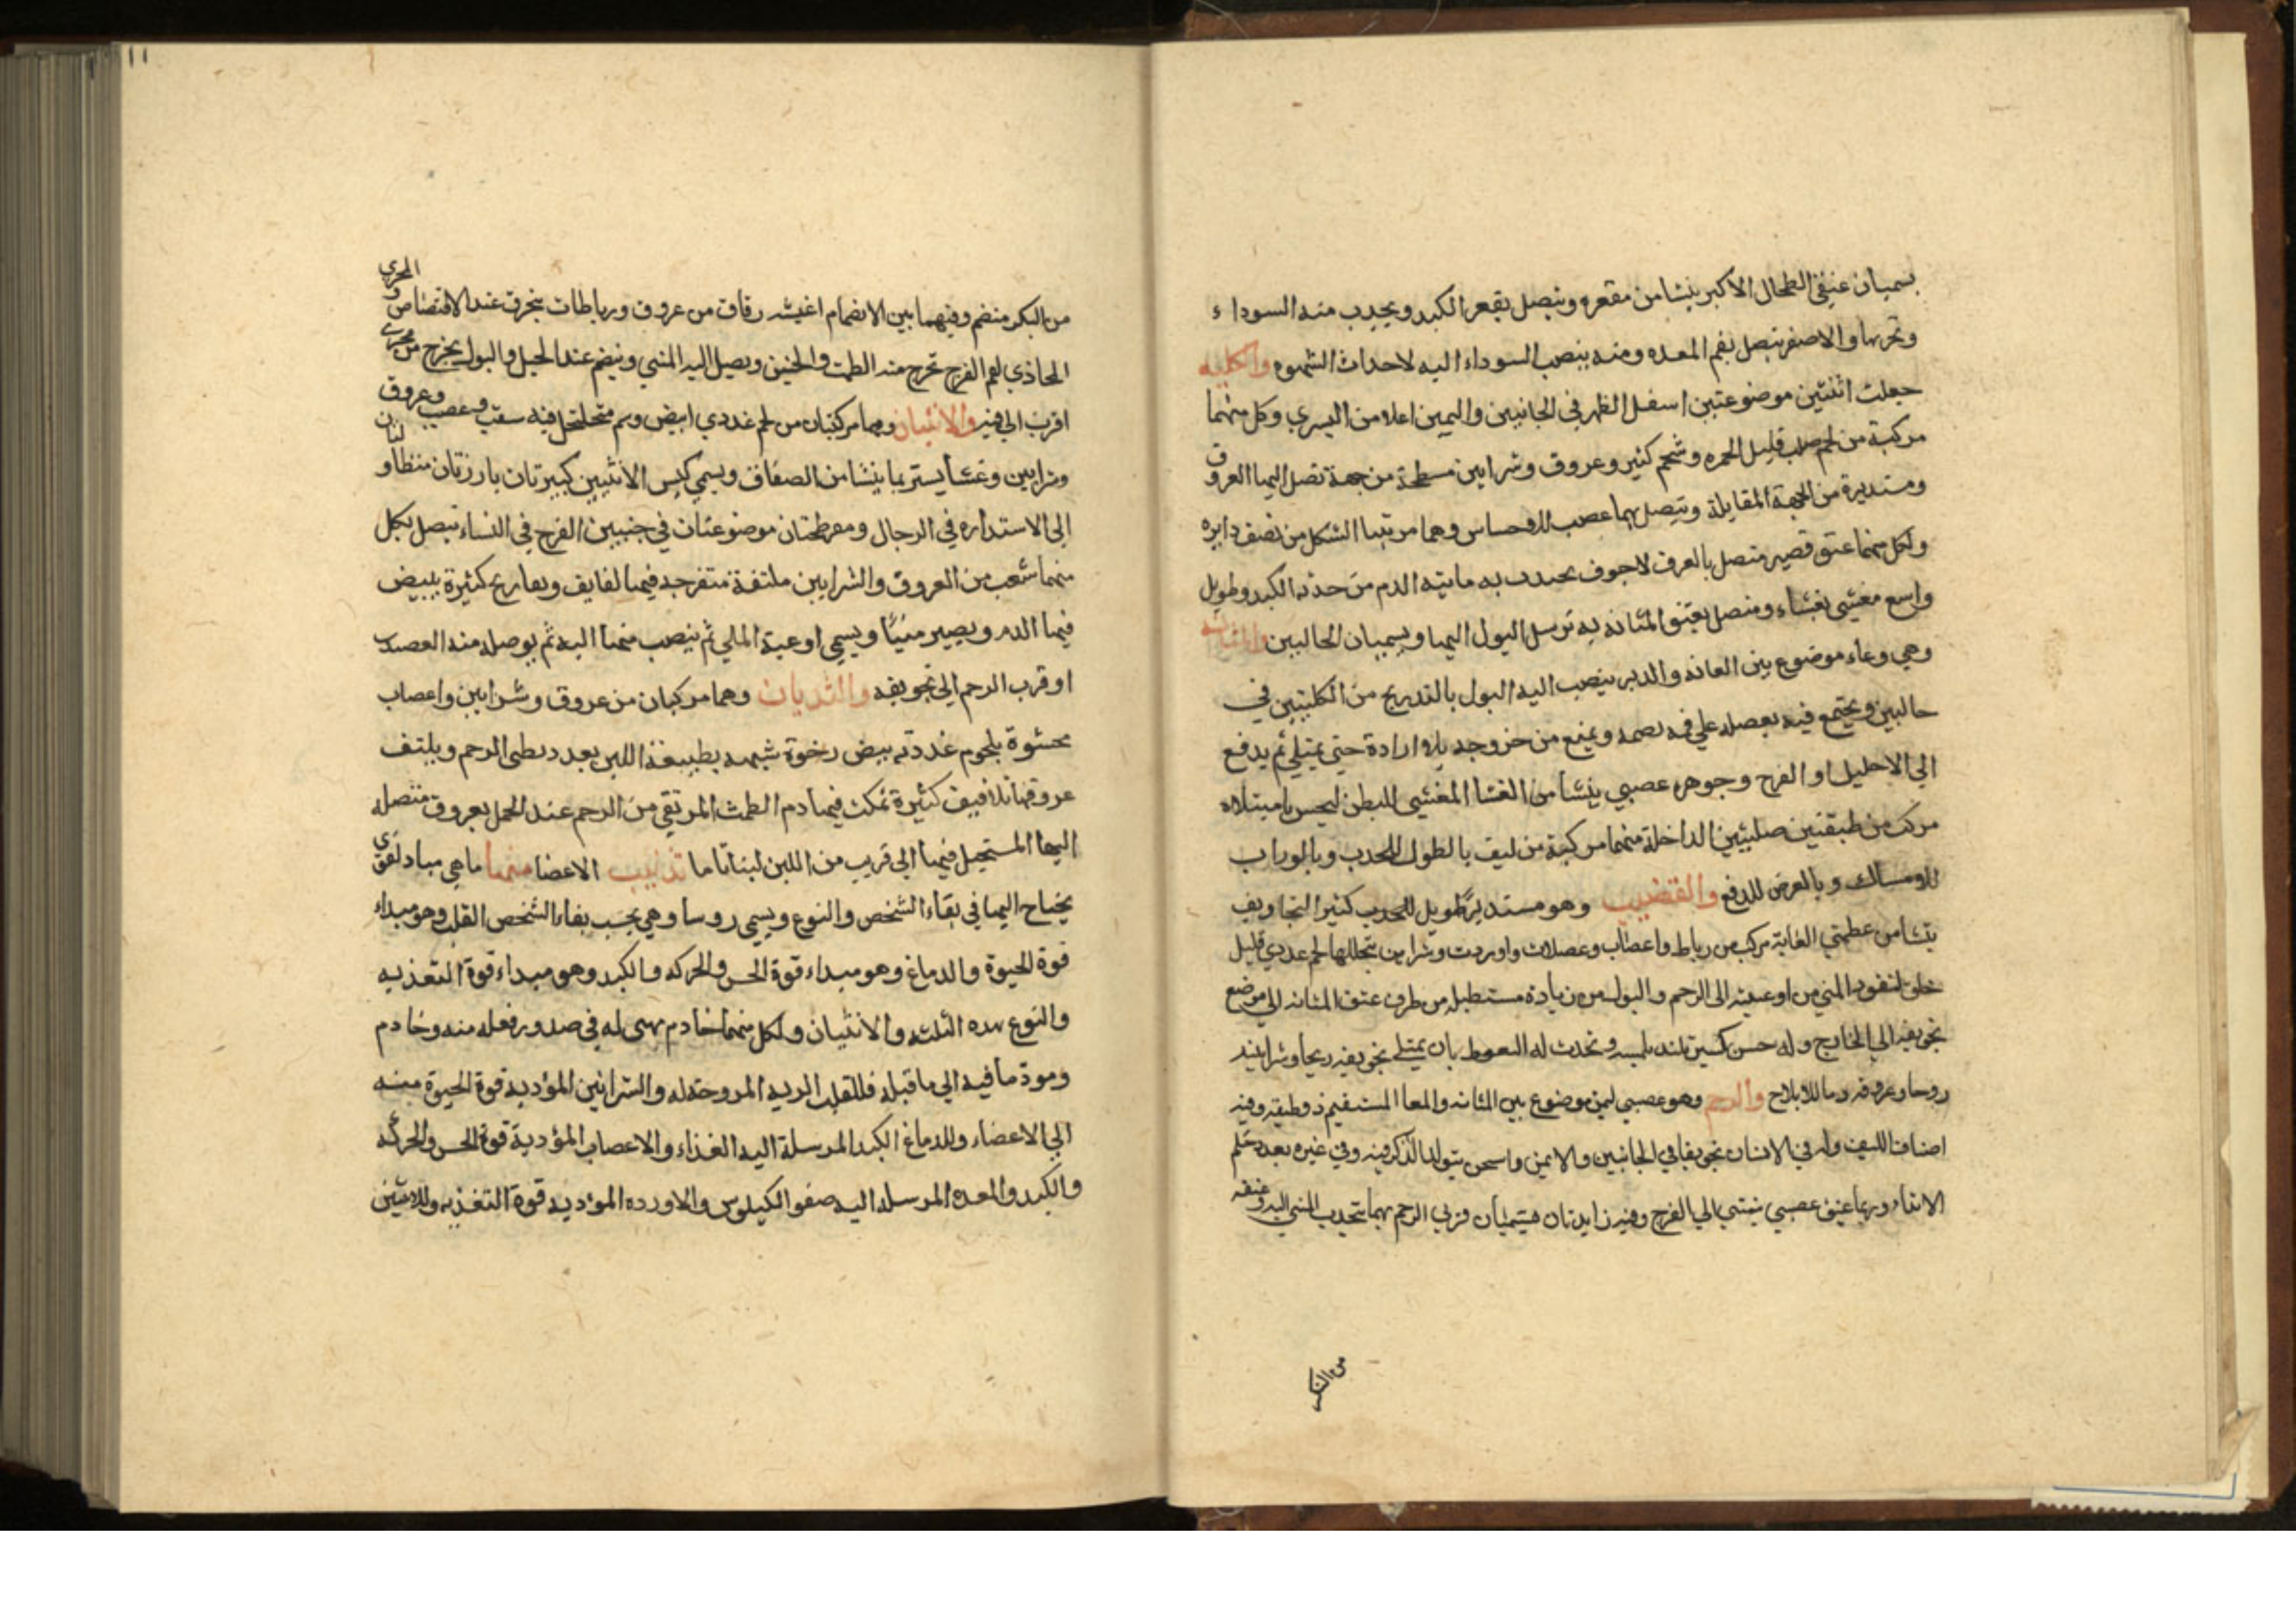 يسميان عنقي الطحال الاكبر ينشا من مقعره ويتصل بقعر الكبد ويجدب منه السوداء
والاصغر يتصل بفم المعده ومنه ينصب السوداء اليه لاحداث الشهوه والكليه
جعلت اثنتين موضوعتين اسفل الظهر في الجانبين واليمين اعلا من اليسري وكل منهما
مركبة من لحم صلب قليل الحمره وشحم كثير وعروق وشرايين مسطحة من جهة تصل اليها العروق
ومستديرة من الجهة المقابلة ويتصل بهما عصب للاحساس وهما مرتبا الشكل من نصف دايره
ولكل منهما عنق قصير متصل بالعرف لاجوف يجدب به مايته الدم من حدبه الكبد وطويل
واسع مغشي بغشاء ومتصل بعنق المثانه به ترسل البول اليها ويسميان الحالبين والمثانه
وهي وعاء موضوع بين العانه والدبر ينصب اليه البول بالتدريج من الكليتين في
حالبين ويجتمع فيه بعضله علي فمه تضمه ويمنع من خروجه بلا ارادة حتي يمتلي ثم يدفع
الي الاحليل او الفرج وجوهره عصبي ينشا من الغشا المغشي للبطن ليحس بامتلاه
مركب من طبقتين صلبتين الداخلة منهما مركبة من ليف بالطول للجدب وبالوراب
للامساك وبالعرض للدفع والقضيب وهو مستدير طويل للجدب كثير التجاويف
ينشا من عظمتي العانة مركب من رباط واعصاب وعضلات واوردت وشراين يتخللها لحم غددي قليل
خلق لنفود المني من اوعيته الى الرحم والبول من زيادة مستطيله من طرف عنق المثانه الي موضع
تجويفه الي الخارج وله حس كثير تلتد بلمسه وتحدث له النعوط بان يمتلے تجويفه ريحا وشرايينه
روحا وعروقه دما للايلاج والرحم وهو عصبي لين موضوع بين المثانه والمعا المستقيم ذو طبقه وفيه
اصناف الليف وله في الانسان تجويفا في الجانبين والايمن واسخن يتولد الذكر فيه وفي غيره بعدد حلم
الاثداء وربما عنق عصبي ينتهي الي الفرج وفيه زايدتان يسميان قرني الرحم بهما تجدب المني اليه وعنقه
من البكر
١١
من البكر منضم وفيهما بين الانضمام اغيشه رقاق من عروق ورباطات ينخرق عند الاقتضاض والمجري
المحاذي لفم الفرج تخرج منه الطمث والجنين ويصل اليه المني وينضم عند الحبل والبول يخرج من مجرے
اقرب الي فيه والانثيان وهما مركبتان من لحم غددي ابيض وسم متخلخل فيه سقب وعصب وعروق
وشرايين وغشا يستر بما ينشا من الصفاق ويسمي كيس الانثيين كبيرتان بارزتان متطاولتان
الى الاستداره في الرجال ومفرطحتان موضوعتان في جنبين الفرج في النساء يتصل بكل
منهما شعب من العروق والشرايين ملتفة متفرجه فيها لفايف وتعاريج كثيرة يبيض
فيها الدم ويصير منيًا ويسمي اوعية المني ثم ينصب منها اليه ثم يوصله منه العصب
او قرب الرحم الي تجويفه والثديان وهما مركبان من عروق وشرايين واعصاب
محشوة بلحوم غددته بيض رخوة شبيهه بطبيعة اللبن بعدد بطن الرحم ويلتف
عروقها تلافيف كثيرة تمكث فيها دم الطمث المرتقي من الرحم عند الحمل بعروق متصله
اليها المستحيل فيها الي قريب من اللبن لبنا تاما تذنيب الاعضا منها ما هي مباد لقوي
يحتاح اليها في بقاء الشخص والنوع ويسمي روسا وهي بحسب بقاء الشخص القلب وهو مبداء
قوة الحيوة والدماغ وهو مبداء قوة الحس والحركه والكبد وهو مبداء قوة التغذيه
والنوع بهده الثلثه والانثيان ولكل منهما خادم يهيى له في صدور فعله منه وخادم
ومودّ ما فيه الي ما قبله فللقلب الريه المروحة له والشرائين المؤديه قوة الحيوة منه
الي الاعضاء وللدماغ الكبد المرسلة اليه الغذاء والاعصاب المؤدية قوة الحس والحركه
والكبد والمعده المرسله اليه صفو الكيلوس والاورده الموديه قوة التغذيه وللانثيين